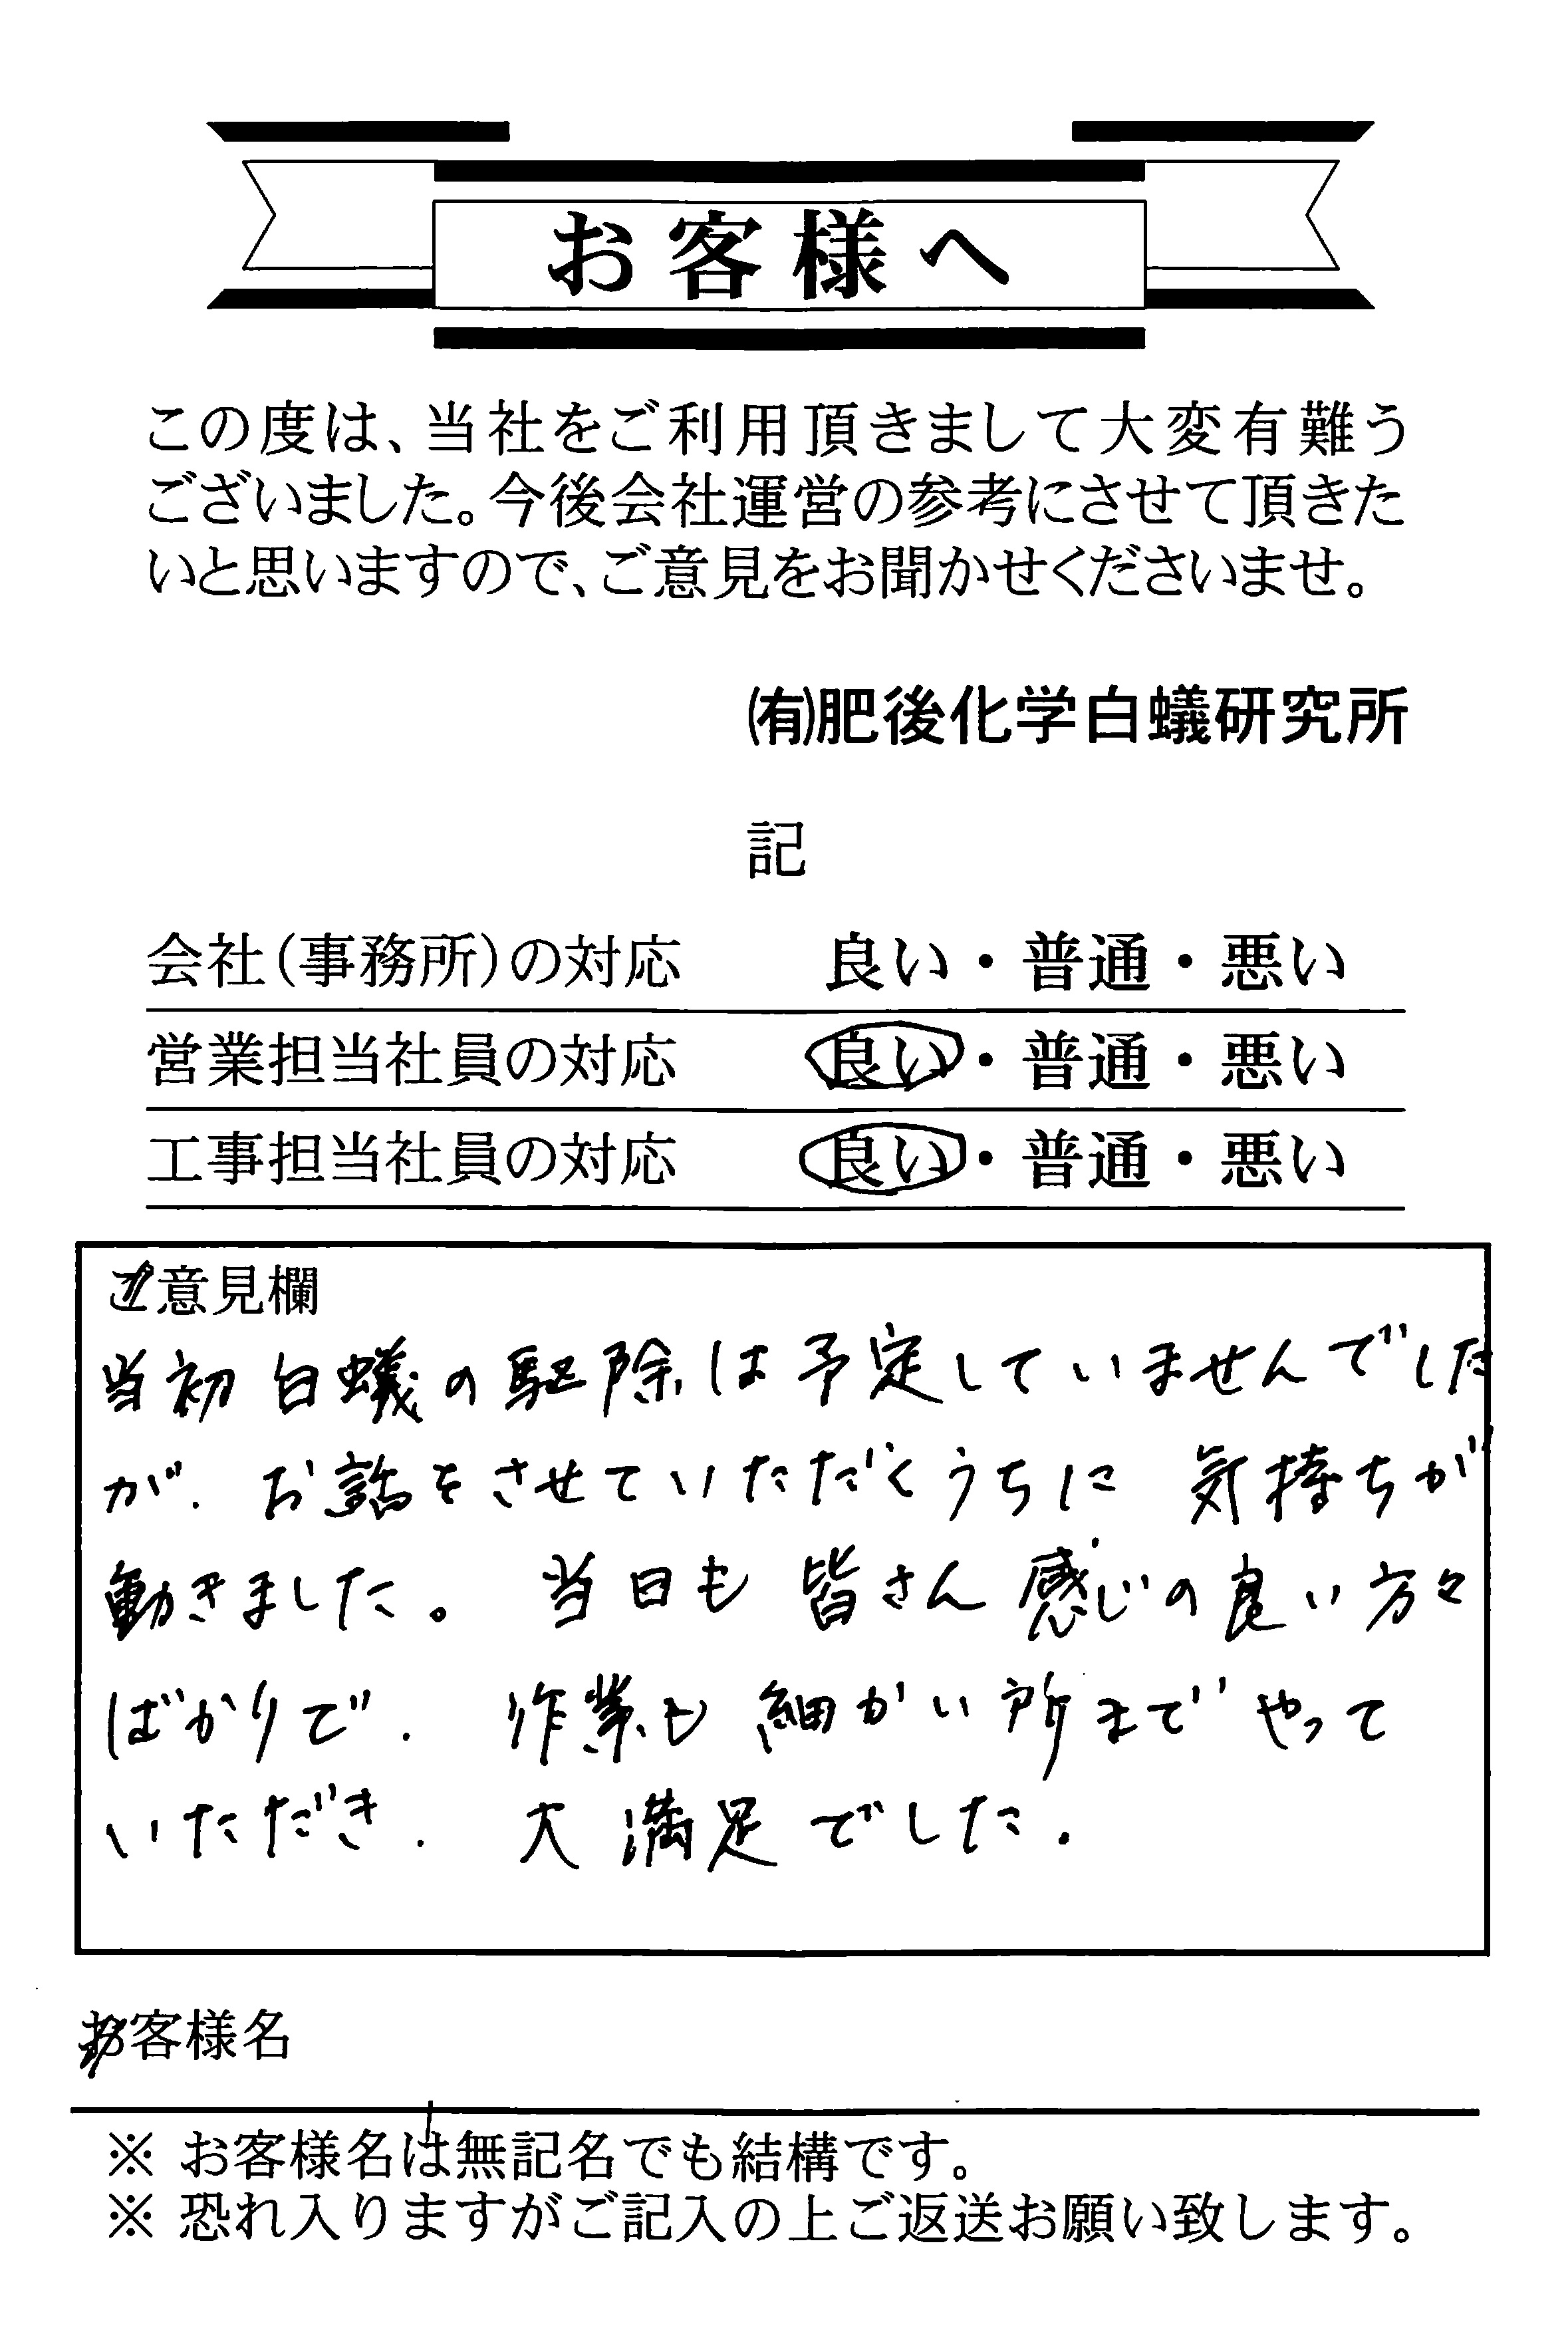 お客様へ
この度は、当社をご利用頂きまして大変有難う
ございました。今後会社運営の参考にさせて頂きた
いと思いますので、ご意見をお聞かせくださいませ。
㈲肥後化学白蟻研究所
記
会社(事務所)の対応 良い・普通・悪い
営業担当社員の対応 良い・普通・悪い
工事担当社員の対応 良い・普通・悪い
ご意見欄
当初白蟻の駆除は予定していませんでした
が、お話をさせていただくうちに 気持ちが
動きました。 当日も 皆さん 感じの良い方々
ばかりで、 作業も 細かい所まで やって
いただき、 大満足でした。
お客様名
※ お客様名は無記名でも結構です。
※ 恐れ入りますがご記入の上ご返送お願い致します。